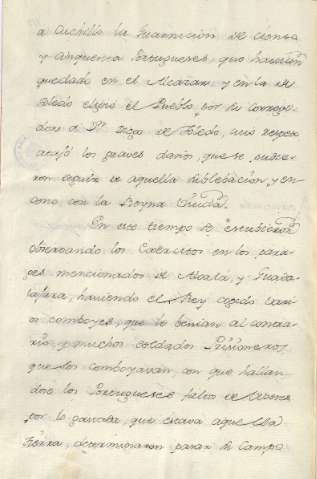 a cuchillo la Guarnicion de ciento
y cinquenta Portugueses, que havian
quedado en el Alcazar y en la de
Toledo eligio el Pueblo por su corregi-
dor a Dn de Toledo, cuio respeto
atajó los graves daños, que se
ron de aquella sublebacion, y en-
cono con la Reyna Viuda.
En este tiempo se
observando los en los para-
ges mencionados de Alcalá, y Guada-
laxara, haviendo el Rey cogido vari-
os comboyes, que le benian al contra-
rio, y muchos soldados Prisioneros
que los comboyavan, con que hallan-
dose los Portugueses faltos de
por lo gastada, que estava aquella
tierra, determinaron pasar el Campo